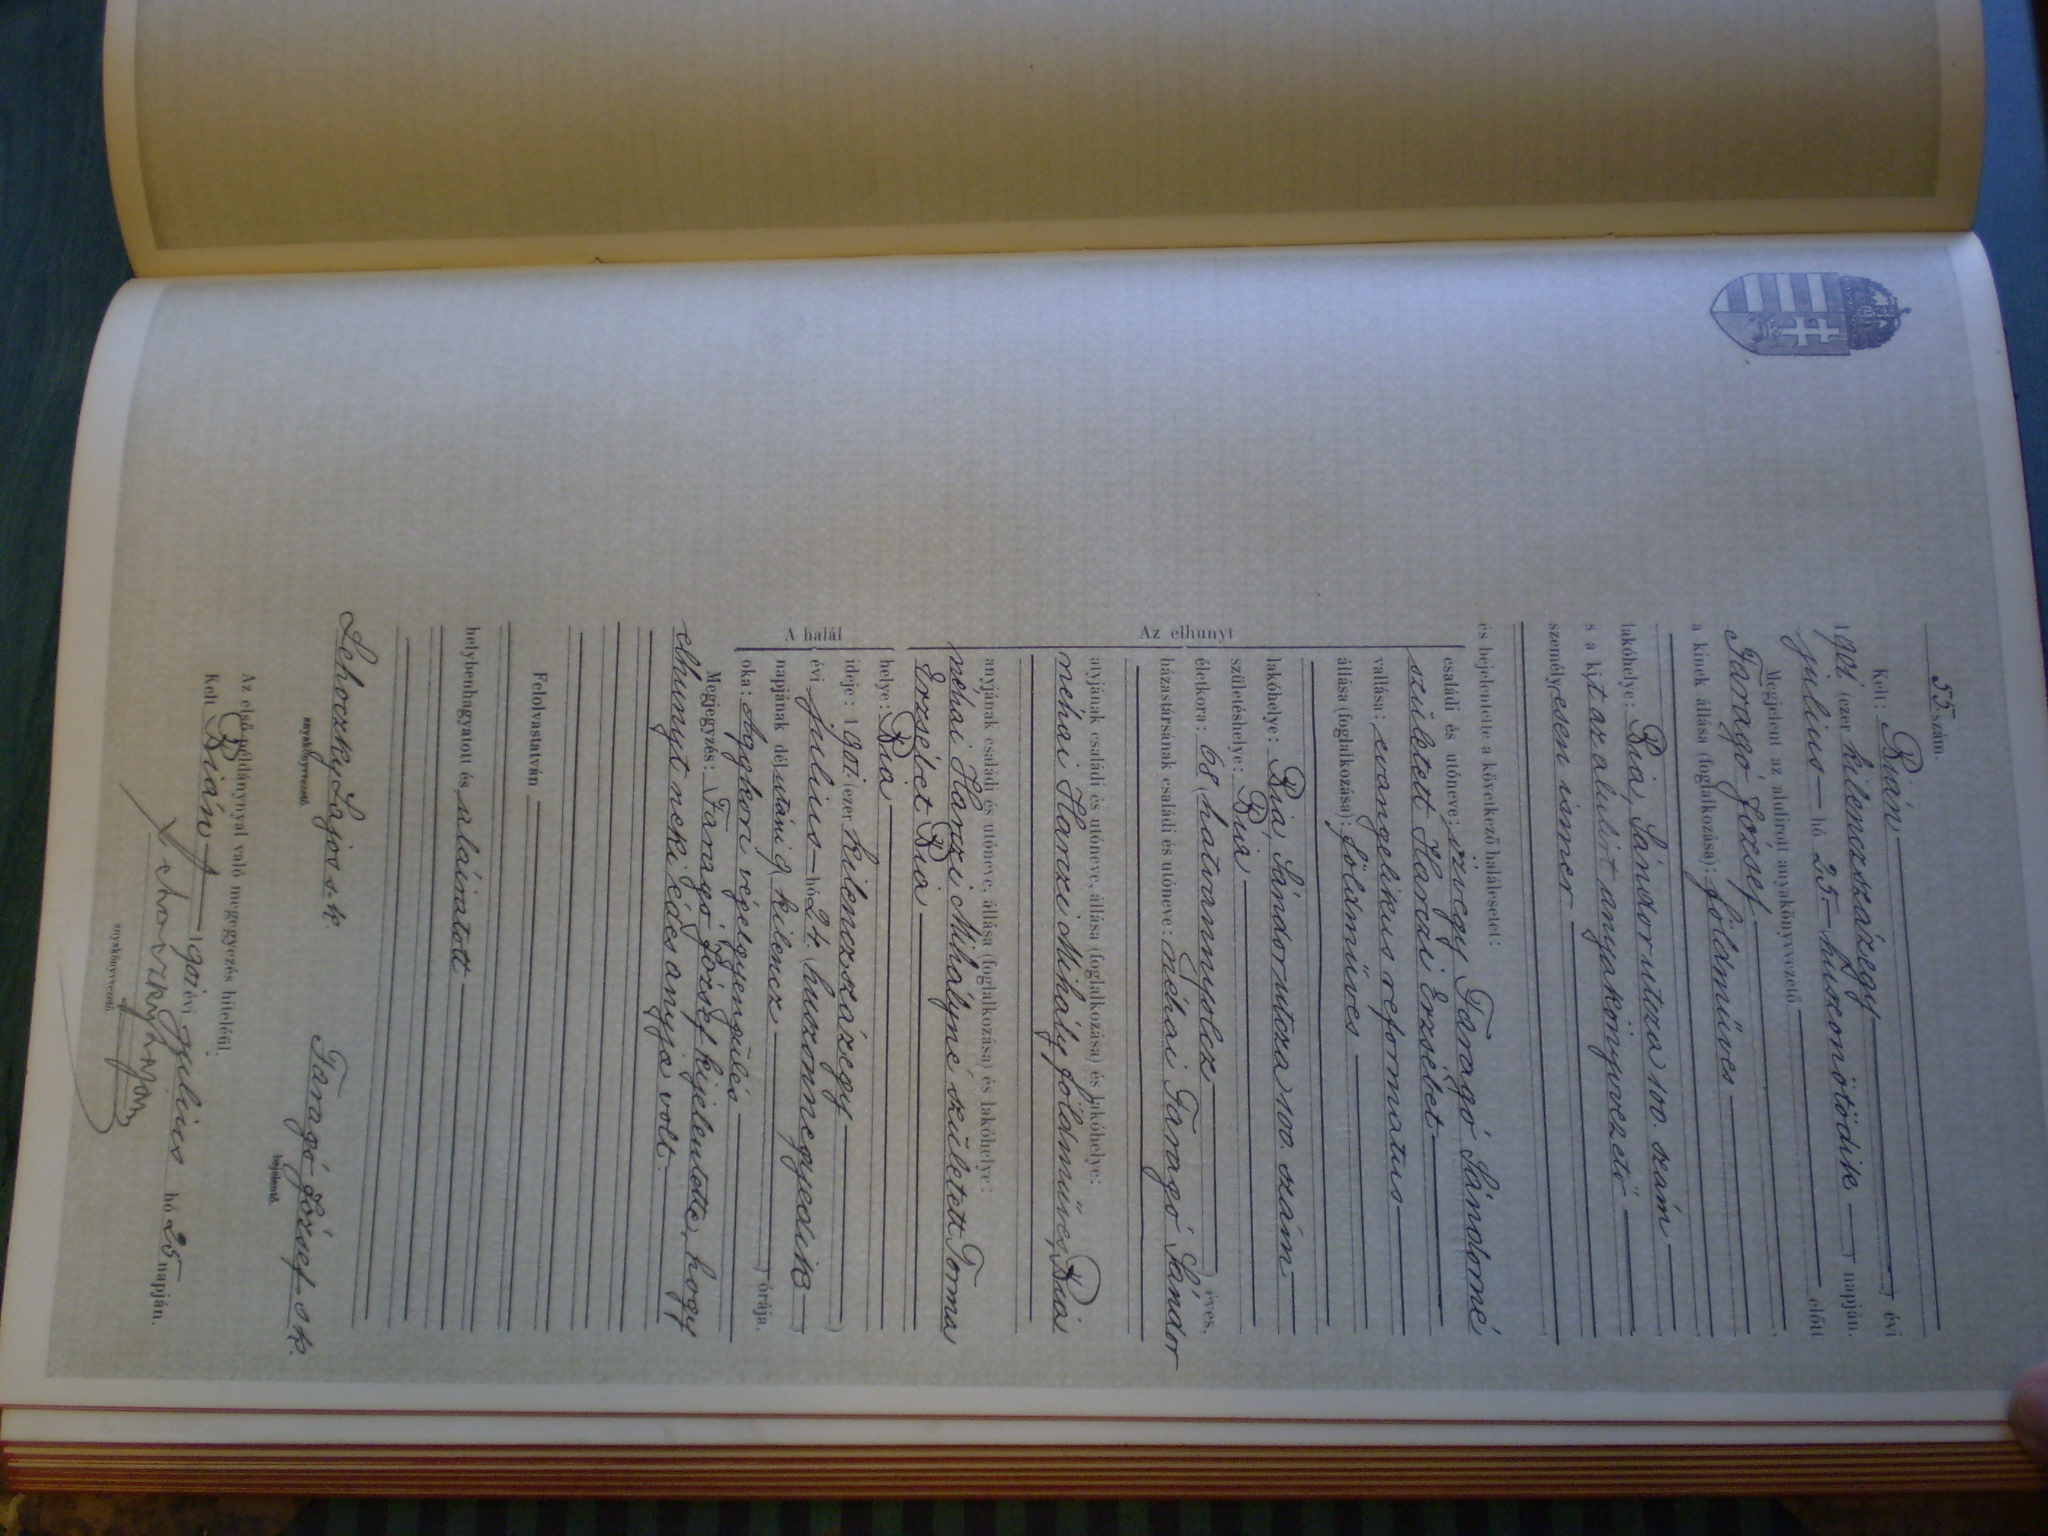 55 szám.
Kelt: Bián
1901. (ezer kilenczszázegy) évi
julius hó 25. huszonötödik napján.
Megjelent az alulirott anyakönyvvezető előtt
Faragó József
a kinek állása (foglalkozása): földmüves
lakóhelye: Bia, Sándor utcza 100. szám
s a kit az alulirt anyakönyvvezető
személyesen ismer
és bejelentette a következő halálesetet:
Az elhunyt
családi és utóneve: özvegy Faragó Sándorné
született Harczi Erzsébet
vallása: evangelikus reformatus
állása (foglalkozása): földmüves
lakóhelye: Bia, Sándor utcza 100. szám
születéshelye: Bia
életkora: 68 (hatvannyolcz) éves,
házastársának családi és utóneve: néhai Faragó Sándor
atyjának családi és utóneve, állása (foglalkozása) és lakóhelye:
néhai Harczi Mihály földmüves, Bia
anyjának családi és utóneve, állása (foglalkozása) és lakóhelye:
néhai Harczi Mihályné született Toma
Erzsébet Bia
A halál
helye: Bia
ideje: 1901. (ezer kilenczszázegy)
évi julius hó 24. (huszonnegyedik)
napjának délutáni 9 (kilencz) órája.
oka: Aggkori végelgyengülés
Megjegyzés: Faragó József kijelentette, hogy
elhunyt neki édes anyja volt.
Felolvastatván
helybenhagyatott és aláiratott
Lehoczky Lajos s. k. Faragó József s. k.
anyakönyvvezető. bejelentő.
Az első példánynyal való megegyezés hiteléül.
Kelt Bián 1901 évi julius hó 25 napján.
Lehoczky Lajos
anyakönyvvezető.